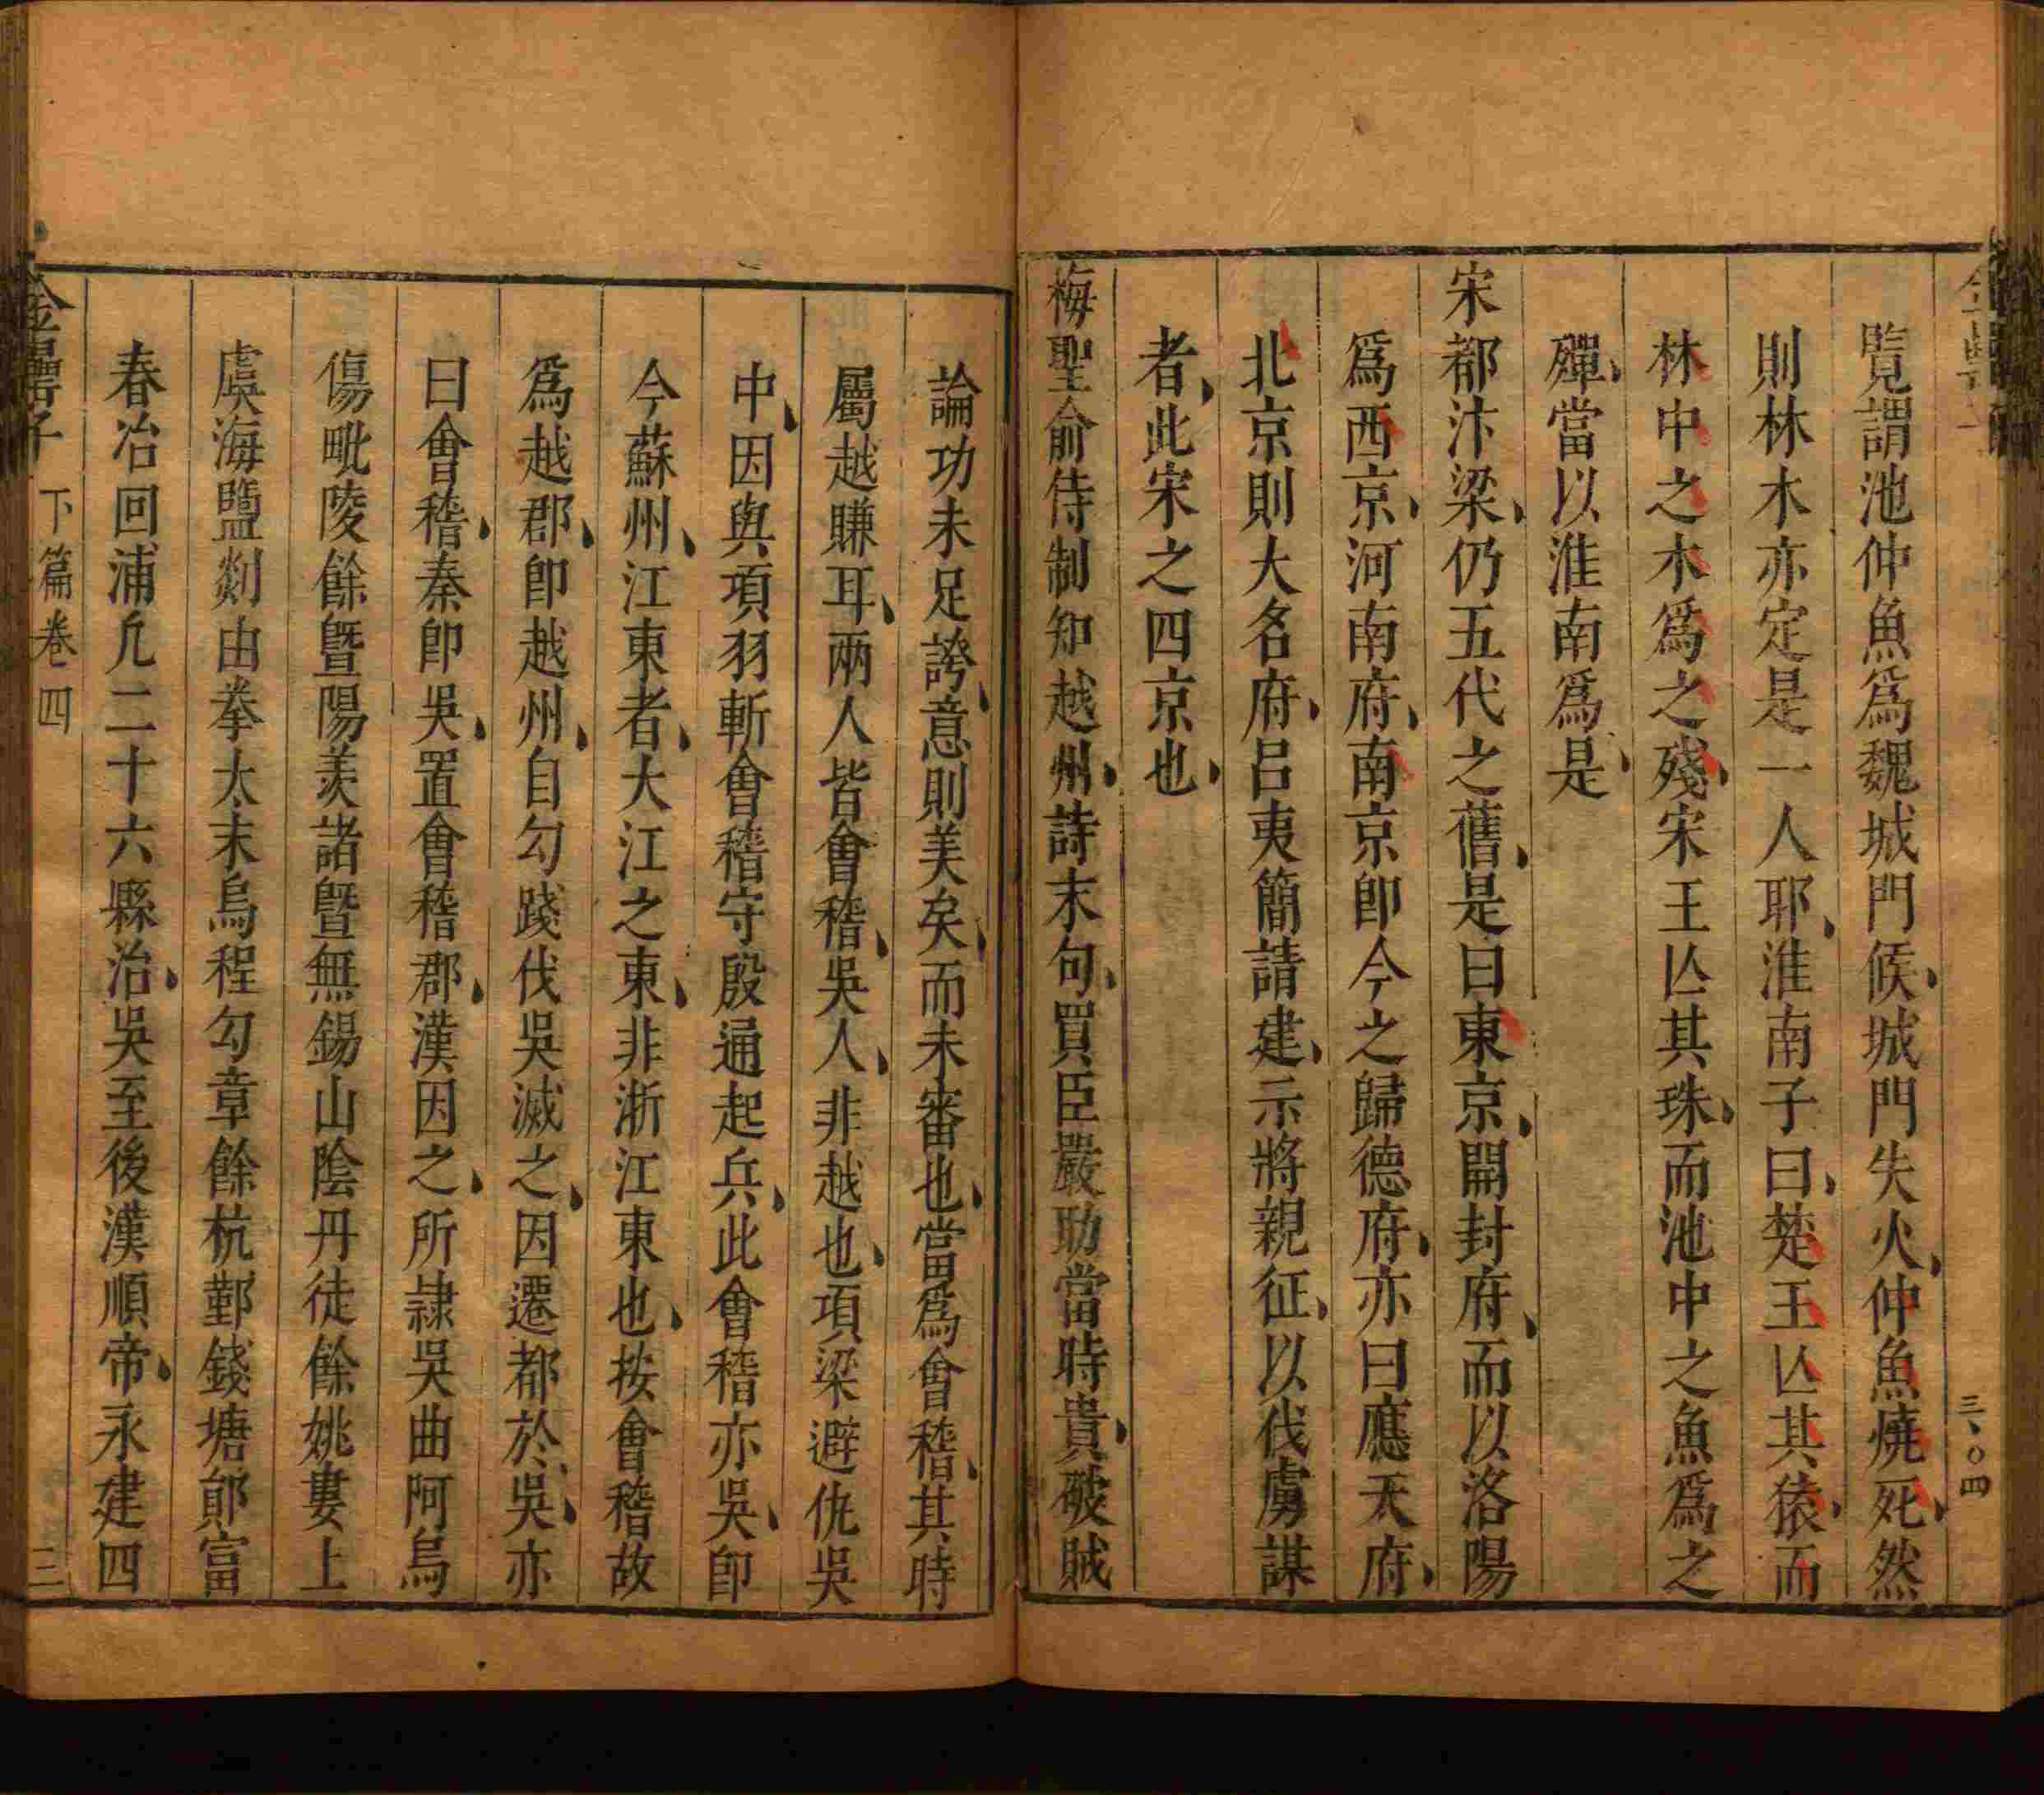 覧謂池仲魚爲魏城門候城門失火仲魚燒死然
則林木亦定是一人耶淮南子曰楚王亾其猿而
林中之木爲之殘宋王亾其珠而池中之魚爲之
殫當以淮南爲是
宋都汴梁仍五代之舊是曰東京開封府而以洛陽
爲西京河南府南京卽今之歸德府亦曰應天府
北京則大名府吕夷簡請建示將親征以伐虜謀
者此宋之四京也
梅聖俞侍制知越州詩末句買臣嚴助當時貴破賊
三、〇四
論功未足誇意則美矣而未審也當爲會稽其時
屬越賺耳兩人皆會稽吳人非越也項梁避仇吳
中因與項羽斬會稽守殷通起兵此會稽亦吳卽
今蘇州江東者大江之東非浙江東也按會稽故
爲越郡卽越州自勾踐伐吳滅之因遷都於吳亦
曰會稽秦卽吳置會稽郡漢因之所隷吳曲阿烏
傷毗陵餘曁陽羨諸曁無錫山陰丹徒餘姚婁上
虞海鹽剡由拳太末烏程勾章餘杭鄞錢塘鄮富
春冶回浦凢二十六縣治吳至後漢順帝永建四
金罍子 下篇卷四 二